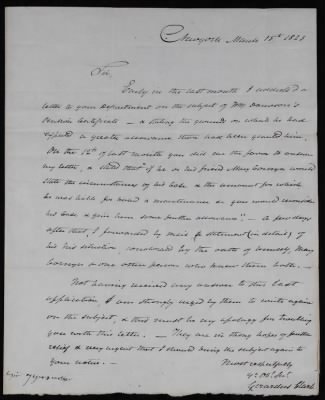 Newyork March 15th 1823
Sir,
Early in the last month I addressed a
letter to your Department on the subject of Wm
Pension Certificate — & stating the ground on which he had
hoped a greater allowance than had been granted him.
On the 12th of last month you did me the favor to answer
my letter, & stated that "if he or his friend Mary
state the circumstances of his case & the amount for which
he was held for a maintenance &c you would reconsider
his case & give him some further allowance". — A few days
after that, I forwarded by mail a statement (in detail) of
his situation, corroborated by the oath of himself, Mary
& one other person who knew them both. —
Not having received any answer to this last
application, I am strongly urged by them to write again
on the subject, & this must be my apology for troubling
you with this letter. — They are in strong hopes of further
relief & very urgent that I should bring the subject again to
your notice. —
Most respectfully
Yr Ob. Svt.
Gerardus Clark